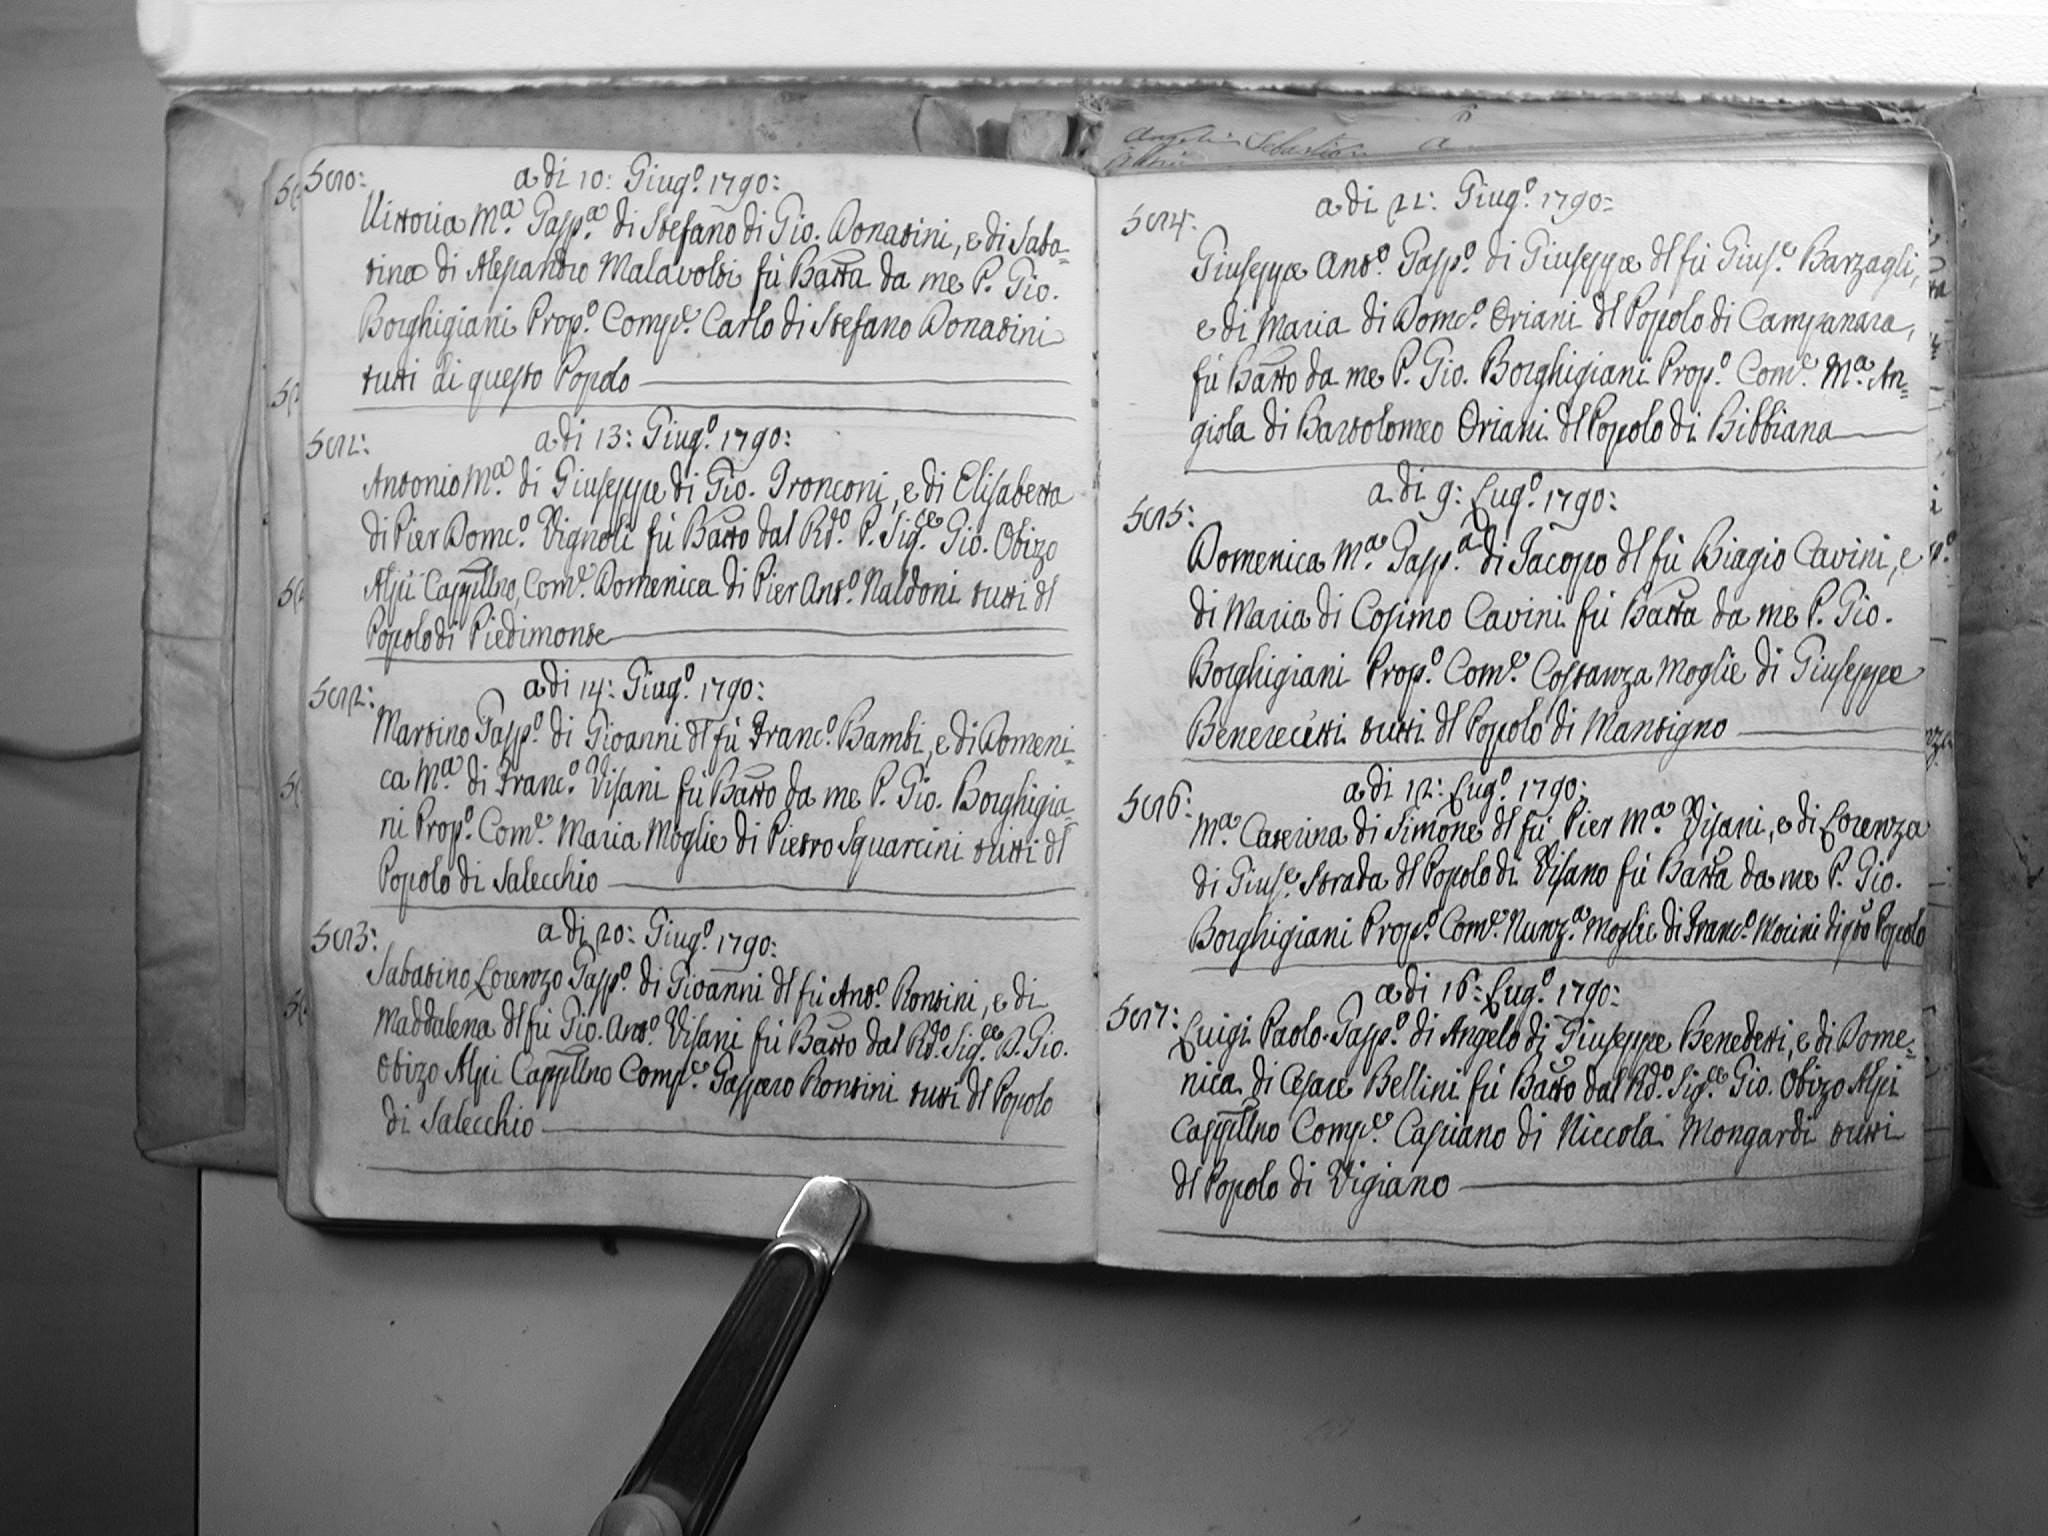 5010:
a di 10: Giugº. 1790:
Vittoria Mª. Gaspª. di Stefano di Gio. Donatini, e di Saba=
tina di Alessandro Malavolti fù Batta da me P. Gio.
Borghigiani Propº. Compe. Carlo di Stefano Donatini
tutti di questo Popolo
5011:
a di 13: Giugº. 1790:
Antonio Mª. di Giuseppe di Gio. Tronconi, e di Elisabetta
di Pier Domcº. Vignoli fù Batto dal Rdº. P. Sigre. Gio. Obizo
Alpi Cappllno, Come. Domenica di Pier Antº. Naldoni tutti dl
Popolo di Piedimonte
5012:
a di 14: Giugº. 1790:
Martino Gaspº. di Giovanni dl fù Francº. Bambi, e di Domeni=
ca Mª di Francº. Visani fù Batto da me P. Gio. Borghigia=
ni Propº. Come. Maria Moglie di Pietro Squarcini tutti dl
Popolo di Salecchio
5013:
a di 20: Giugº. 1790:
Sabatino Lorenzo Gaspº. di Giovanni dl fù Antº. Rontini, e di
Maddalena dl fù Gio. Antº. Visani fù Batto dal Rdº. Sigre. P. Gio.
Obizo Alpi Cappllno Compe. Gasparo Rontini tutti dl Popolo
di Salecchio
5014:
a di 21: Giugº. 1790:
Giuseppe Antº. Gaspº. di Giuseppe dl fù Giuse. Barzagli,
e di Maria di Domcº. Oriani dl Popolo di Campanara,
fù Batto da me P. Gio. Borghigiani Propº. Come. Mª. An=
giola di Bartolomeo Oriani dl Popolo di Bibbiana
5015:
a di 9: Lugº. 1790:
Domenica Mª. Gaspª. di Jacopo dl fù Biagio Cavini, e
di Maria di Cosimo Cavini fù Batta da me P. Gio.
Borghigiani Propº. Come. Costanza Moglie di Giuseppe
tutti dl Popolo di Mantigno
5016:
a di 12: Lugº. 1790:
Mª. Caterina di Simone dl fù Pier Mª. Visani, e di Lorenza
di Giuse. Strada dl Popolo di Visano fù Batta da me P. Gio.
Borghigiani Propº. Come. Nunzª. Moglie di Francº. Morini di qto Popolo
5017:
a di 16: Lugº. 1790:
Luigi Paolo Gaspº. di Angelo di Giuseppe Benedetti, e di Dome=
nica di Cesare Bellini fù Batto dal Rdº. Sigre. Gio. Obizo Alpi
Cappllno Compe. Casiano di Niccola Mongardi tutti
dl Popolo di Vigiano